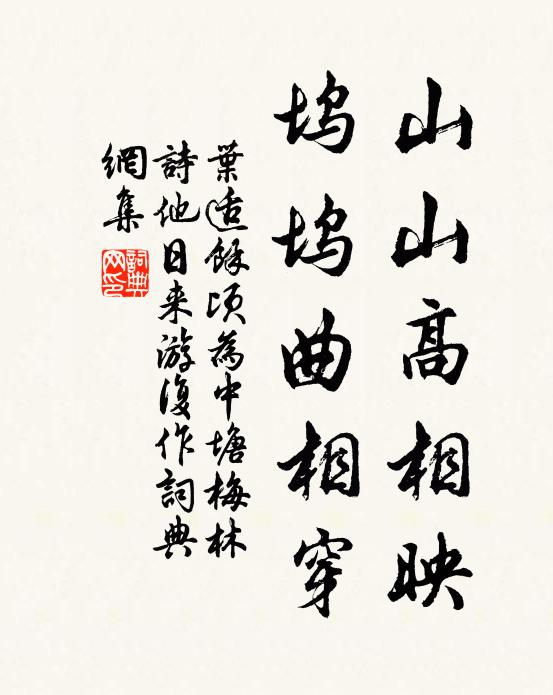 山山高相映
塢塢曲相穿
葉适餘頃為中塘梅林
詩他日来游復作詞典
網集
詞典网印